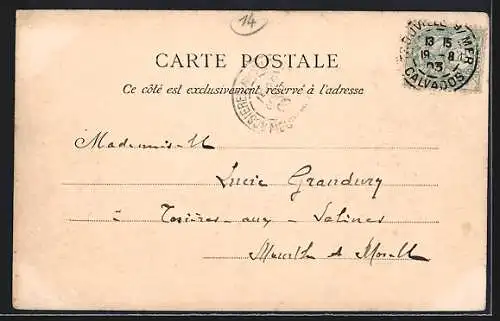 14
CARTE POSTALE
Ce côté est exclusivement réservé à l'adresse
TROUVILLE S/ MER
13 15
19 - 8
03
CALVADOS
Mademoiselle
Lucie Grandury
à Rosières-aux-Salines
Meurthe & Moselle